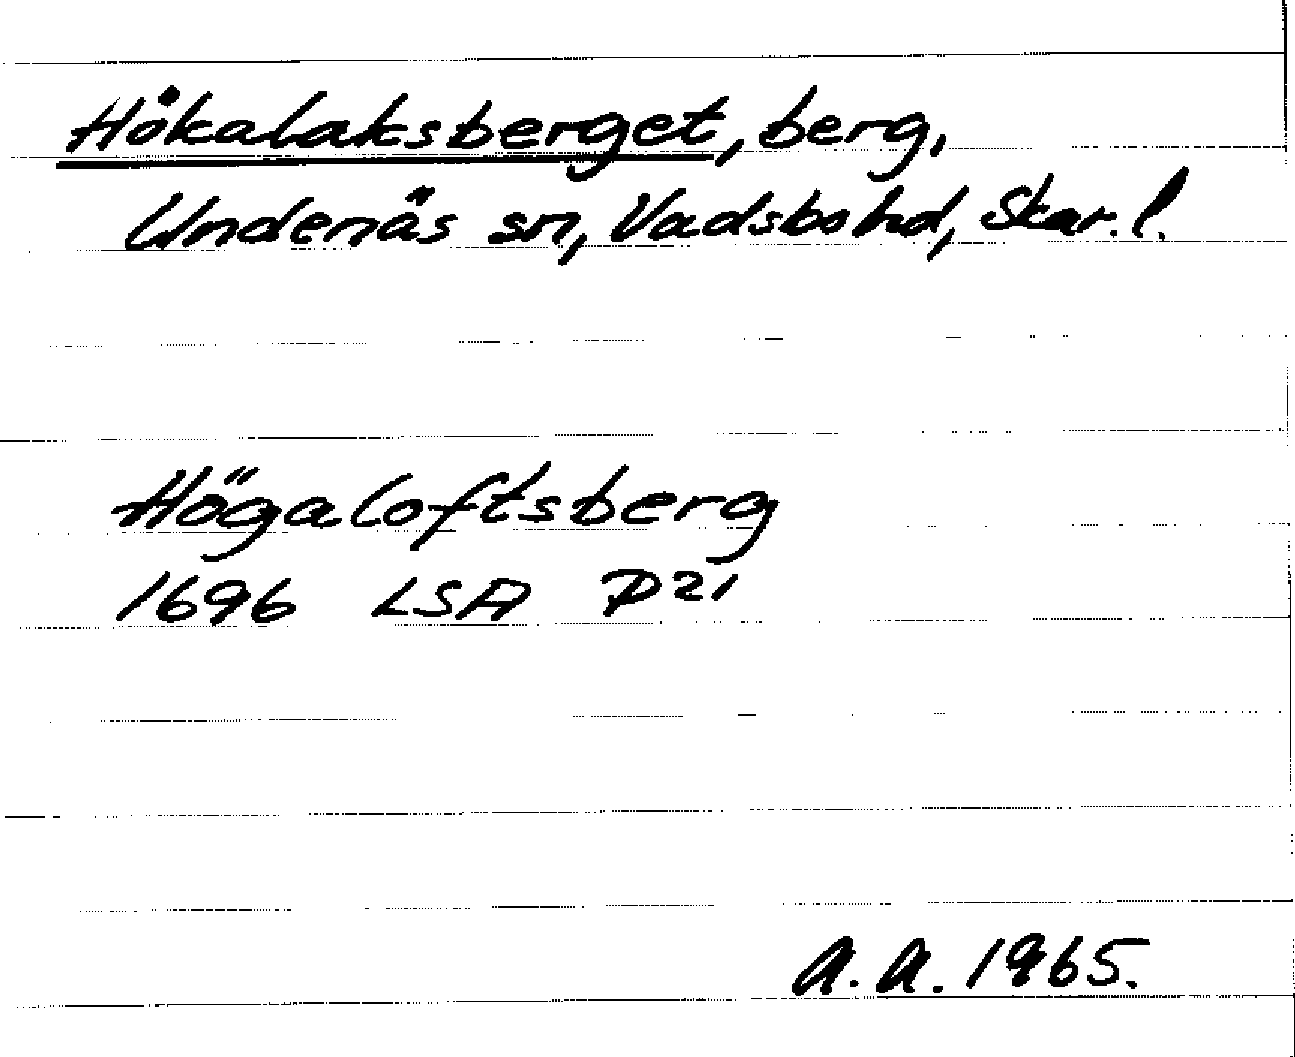 Hökalaksberget, berg,
Undenäs sn, Vadsbo hd, Skar. l.
Högaloftsberg
1696 LSA P21
A. A. 1965.